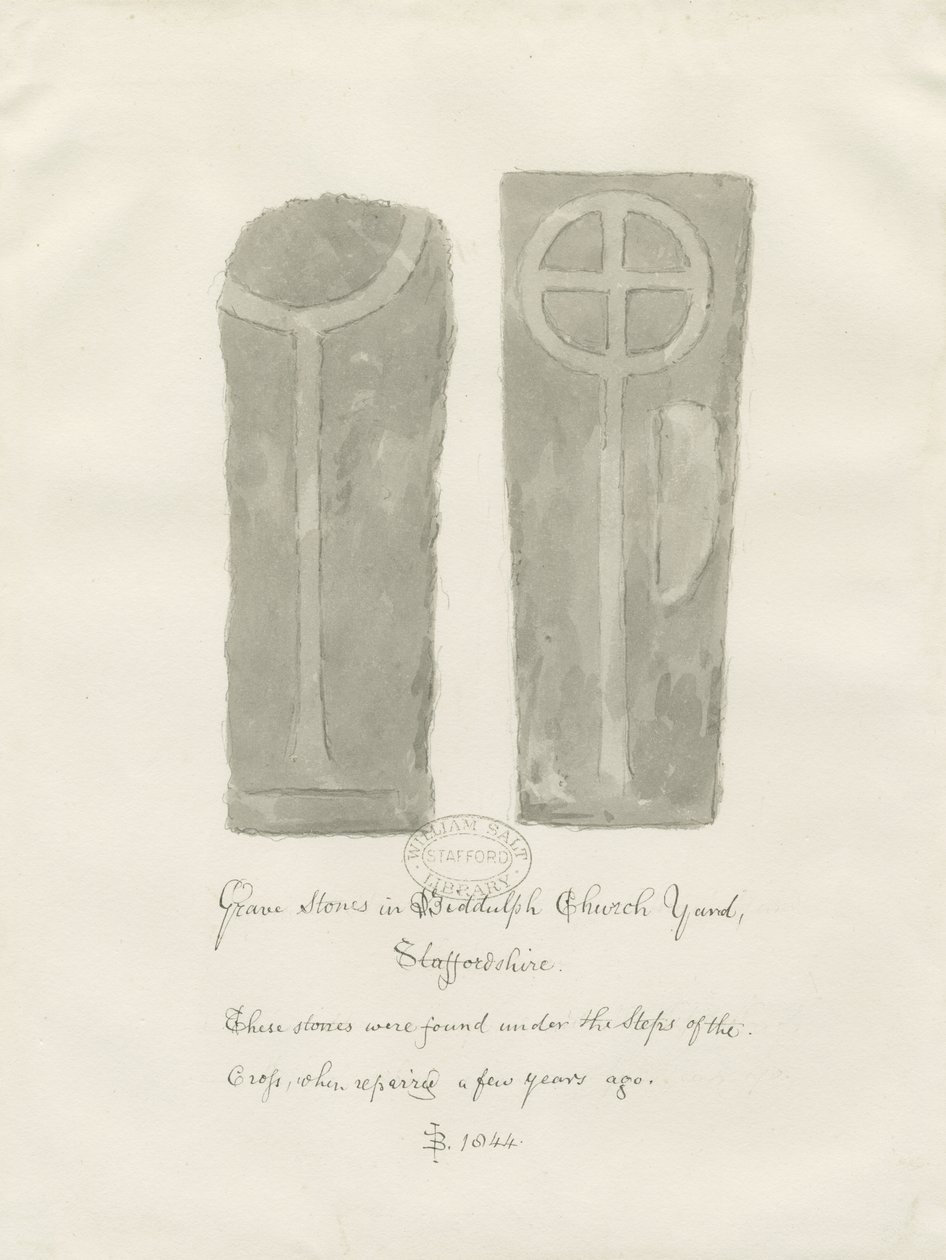 WILLIAM SALT
STAFFORD
LIBRARY
Grave Stones in Biddulph Church Yard,
Staffordshire.
These stones were found under the Steps of the
Croſs, when repaired a few years ago.
IB. 1844.